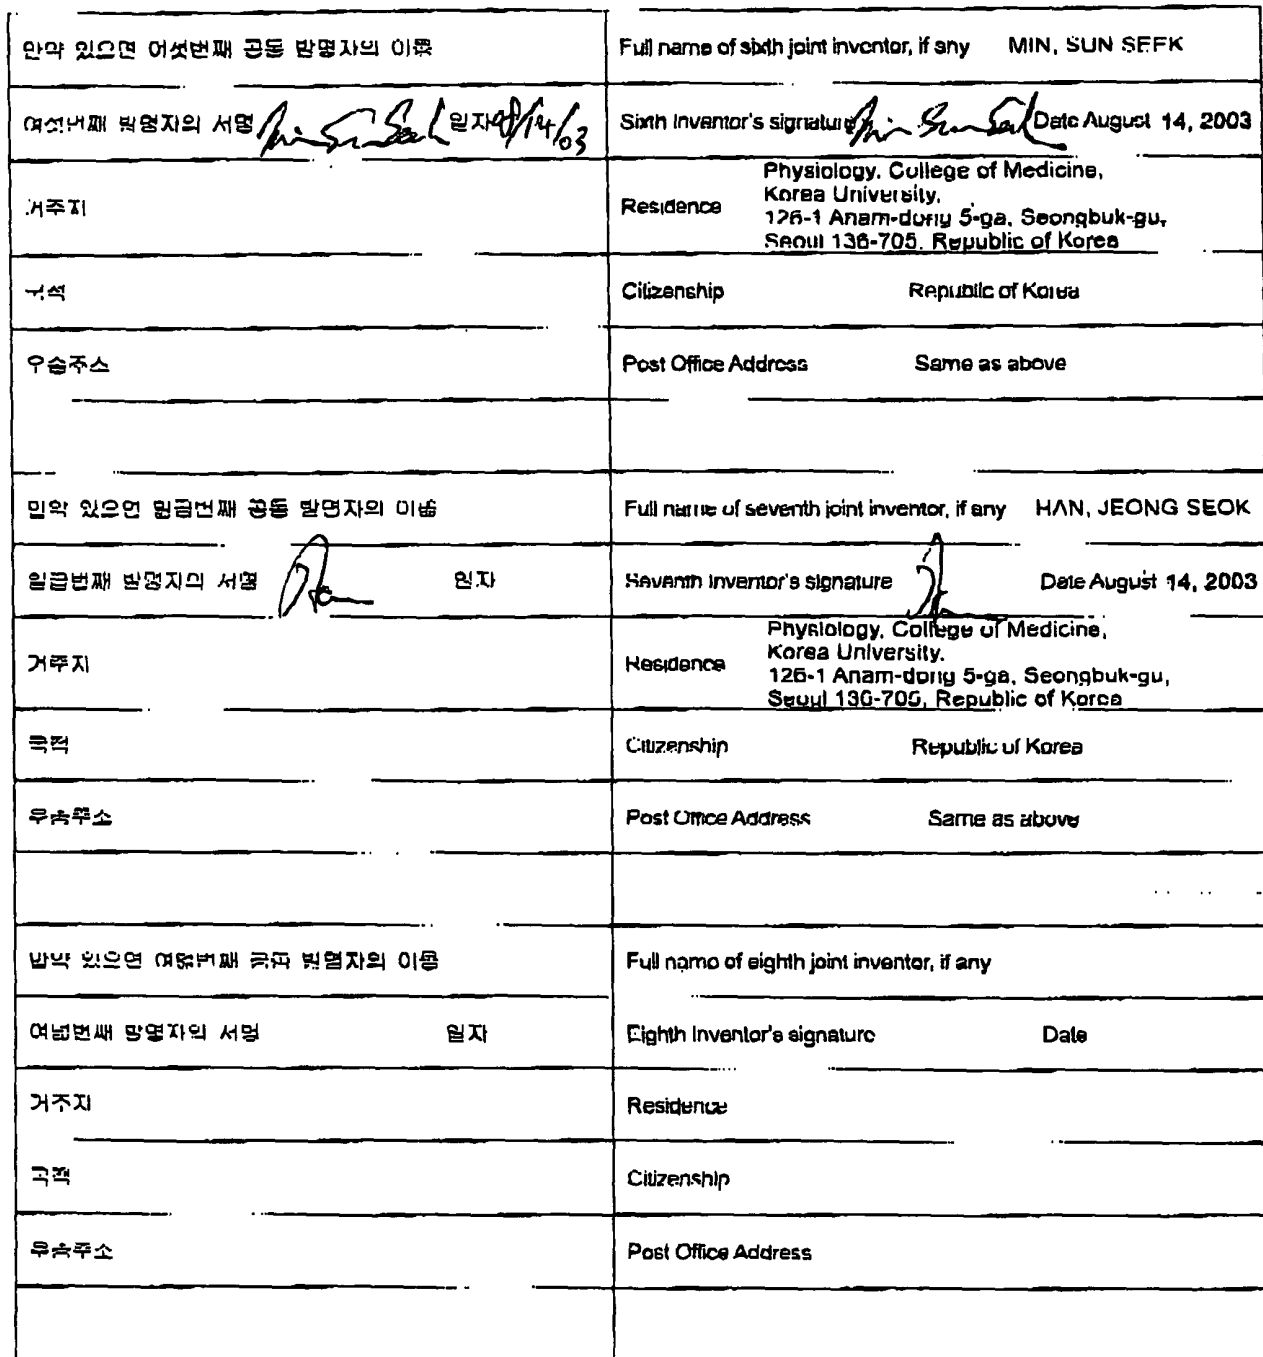 만약 있으면 여섯번째 공동 발명자의 이름
Full name of sixth joint inventor, if any MIN, SUN SEEK
여섯번째 발명자의 서명 일자 08/14/03
Sixth Inventor's signature Date August 14, 2003
거주지
Residence
Physiology, College of Medicine,
Korea University,
126-1 Anam-dong 5-ga, Seongbuk-gu,
Seoul 136-705, Republic of Korea
국적
Citizenship Republic of Korea
우송주소
Post Office Address Same as above
만약 있으면 일곱번째 공동 발명자의 이름
Full name of seventh joint inventor, if any HAN, JEONG SEOK
일곱번째 발명자의 서명 일자
Seventh Inventor's signature Date August 14, 2003
거주지
Residence
Physiology, College of Medicine,
Korea University,
126-1 Anam-dong 5-ga, Seongbuk-gu,
Seoul 136-705, Republic of Korea
국적
Citizenship Republic of Korea
우송주소
Post Office Address Same as above
만약 있으면 여덟번째 공동 발명자의 이름
Full name of eighth joint inventor, if any
여덟번째 발명자의 서명 일자
Eighth Inventor's signature Date
거주지
Residence
국적
Citizenship
우송주소
Post Office Address